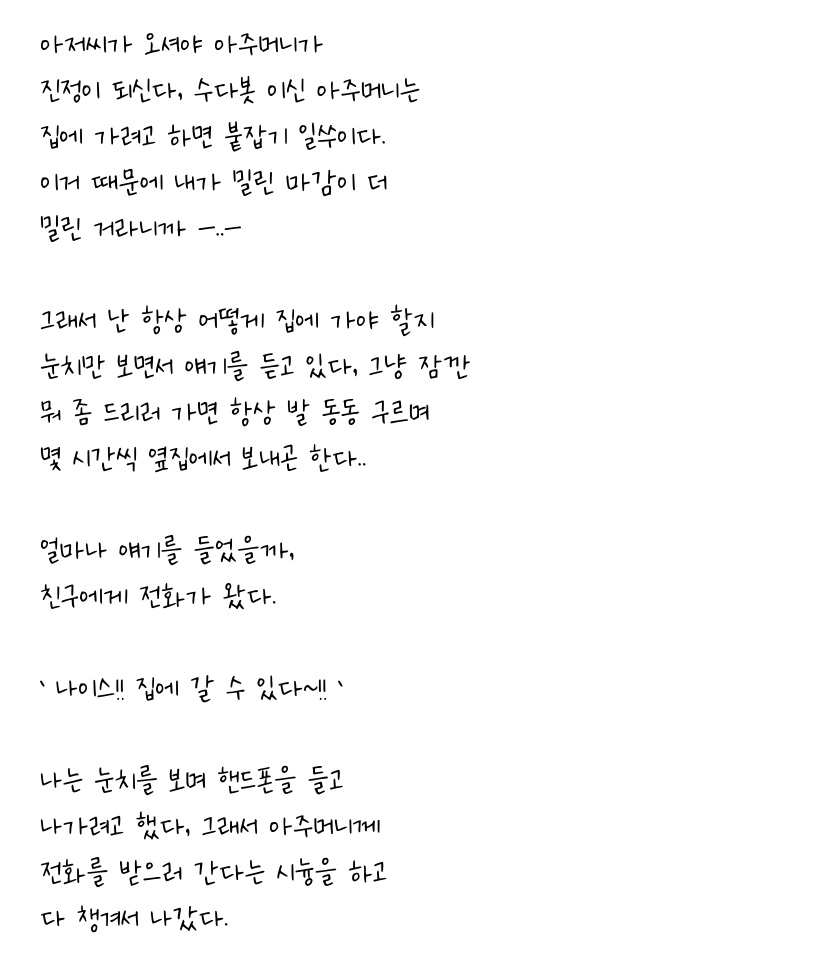 아저씨가 오셔야 아주머니가
진정이 되신다, 수다봇 이신 아주머니는
집에 가려고 하면 붙잡기 일쑤이다.
이거 때문에 내가 밀린 마감이 더
밀린 거라니까 -..-
그래서 난 항상 어떻게 집에 가야 할지
눈치만 보면서 얘기를 듣고 있다, 그냥 잠깐
뭐 좀 드리러 가면 항상 발 동동 구르며
몇 시간씩 옆집에서 보내곤 한다..
얼마나 얘기를 들었을까,
친구에게 전화가 왔다.
` 나이스!! 집에 갈 수 있다~!! `
나는 눈치를 보며 핸드폰을 들고
나가려고 했다, 그래서 아주머니께
전화를 받으러 간다는 시늉을 하고
다 챙겨서 나갔다.